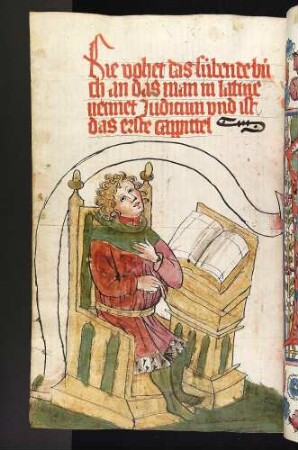 Hie vohet das sübende bů
ch an das man in latine
nennet Judicum vnd ist
das erste cappittel